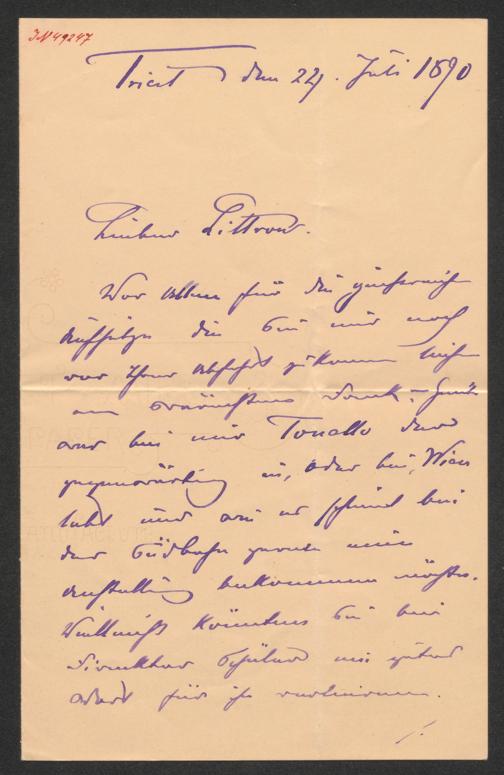 IN 49247
Triest den 24. Juli 1890
Lieber Littrow.
Vor Allem für die
Aufsätze die Sie mir noch
vor Ihrer Abfahrt zukommen ließen
Dank. – Heute
war bei mir Tonello der
gegenwärtig in, oder bei, Wien
lebt und wie es scheint bei
der Südbahn gerne eine
Anstellung bekommen möchte.
Vielleicht könnten Sie bei
Direktor Schüler ein gutes
Wort für ihn verlieren.